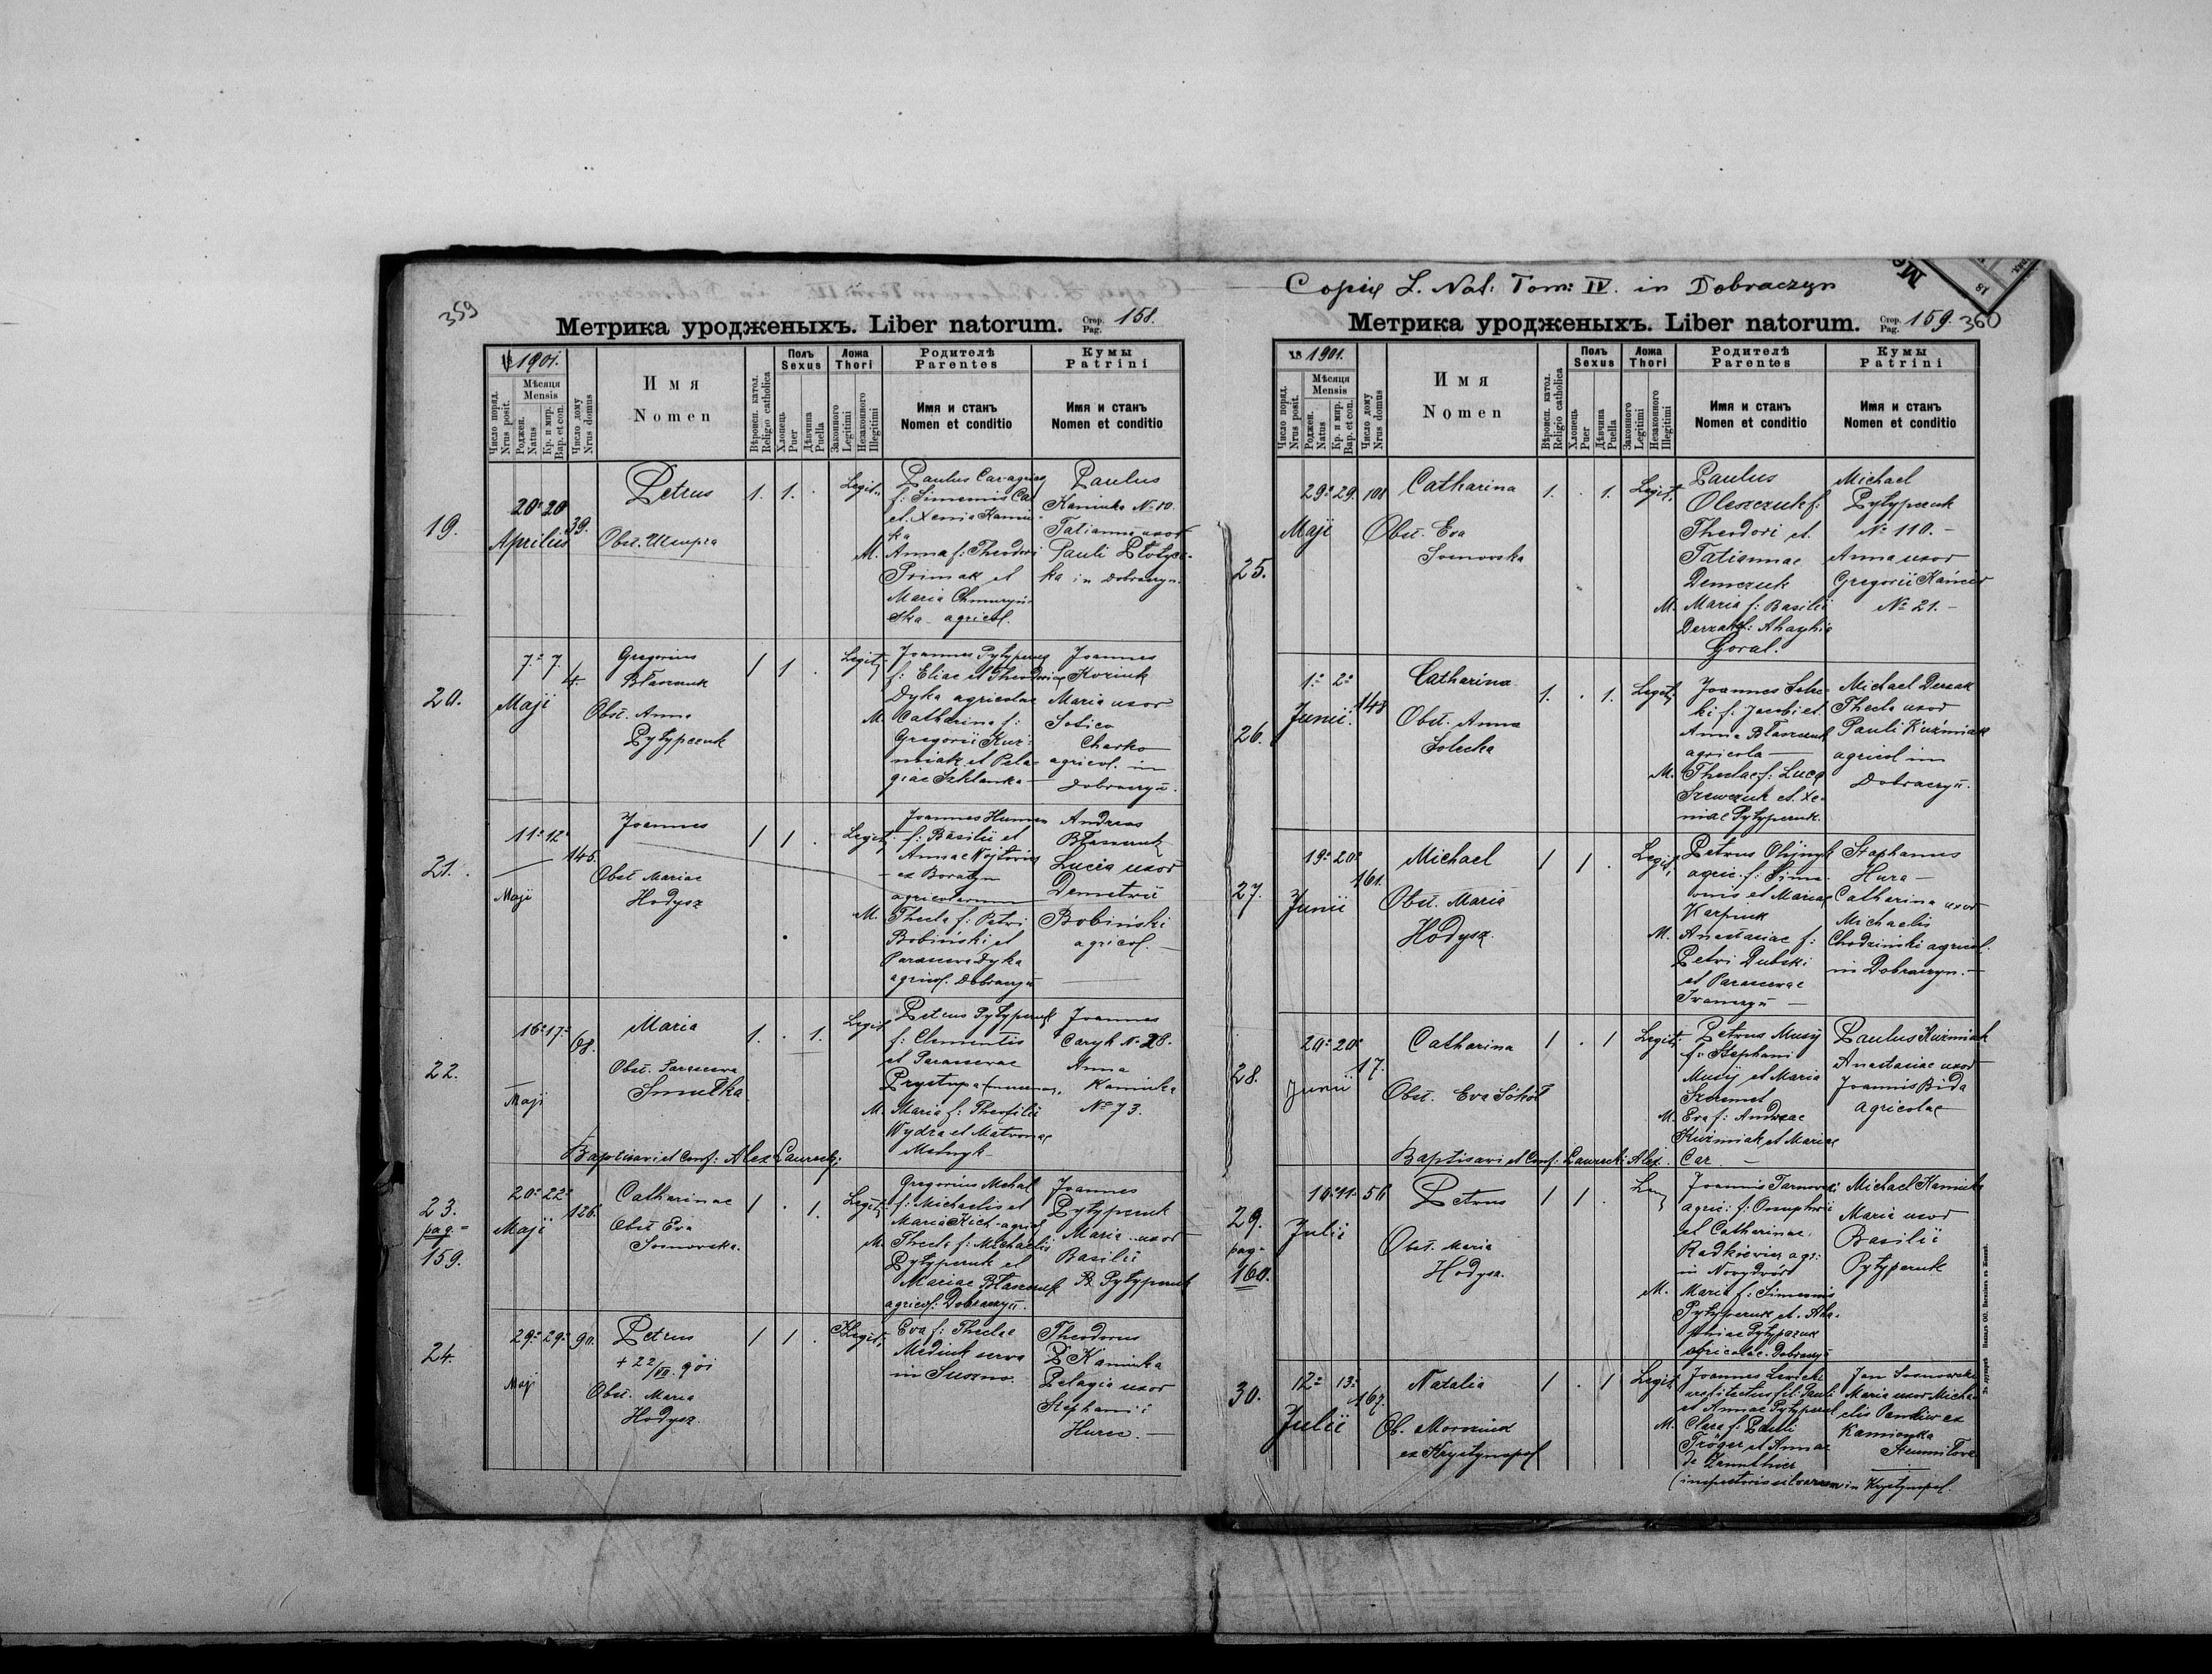 359
Метрика уродженыхъ. Liber natorum. Стор. Pag. 158.
1901.
Число поряд. Nrus posit.
Мѣсяця Mensis
Роджен. Natus
Кр. и мир. Bap. et con.
Число дому Nrus domus
Имя Nomen
Вѣроисп. катол. Religio catholica
Полъ Sexus
Хлопець Puer
Дѣвчина Puella
Ложа Thori
Законного Legitimi
Незаконного Illegitimi
Родителѣ Parentes
Имя и станъ Nomen et conditio
Кумы Patrini
Имя и станъ Nomen et conditio
19.
20 20
Aprilis
39.
Petrus
Obst.
1. 1. .
Legit.
Paulus Car agricol
f: Simeonis Car
et Xenia Kamin-
ka
M. Anna f: Theodori
Primak et
Maria
agricol.
Paulus
Kaminka № 10.
Tatianna uxor
Pauli
ka in Dobraczyn.
20.
7 7
Maji
4.
Gregorius
Błaszczuk
Obst. Anna
Pytypczuk
1 1 .
Legit.
Joannes Pytypczuk
f: Eliae et Theodoriae
Dyka agricolae
M. Catharina f:
Gregorii Kuź-
niak et Pela-
giae Szklanka
Joannes
Koziuk
Maria uxor
Charko
agricol. in
Dobraczyn.
21.
11 12
Maji
145.
Joannes
Obst Mariae
Hodysz
1 1 .
Legit.
Joannes
f: Basilii et
Annae Wojtowicz
ex Boratyn
agricolarum
M. Thecla f: Petri
Bobiński et
Parascewa Dyka
agricol. Dobraczyn
Andreas
Błaszczuk
Lucia uxor
Demetrii
Bobiński
agricol.
22.
16 17
Maji
68.
Maria
Obst. Parascewa
Smutka
1. . 1.
Legit
Petrus Pytypczuk
f: Clementis
et Parascevae
Prystupa
M. Maria f: Theofili
Wydra et Matronae
Melnyk
Joannes
Caryk № 28.
Anna
Kaminka
№ 73.
Baptisavi et Conf: Alex Laurecki
23.
pag.
159.
20 22
Maji
126.
Catharinae
Obst Eva
Sosnowska.
1 . 1.
Legit.
Gregorius Mehal
f: Michaelis et
Maria Kich agricol
M. Thecla f: Michaelis
Pytypczuk et
Mariae Błaszczuk
agricol: Dobraczyn.
Joannes
Pytypczuk
Maria uxor
Basilii
Pytypczuk
24.
29 29
Maji
90.
Petrus
+ 22/VII. 901
Obst. Maria
Hodysz.
1 1 .
Legit.
Eva f: Theclae
Mediuk serva
in Suszno.
Theodorus
Kaminka
Pelagia uxor
Stephani
Hura.
Copia L. Nat: Tom: IV. in Dobraczyn
Метрика уродженыхъ. Liber natorum. Стор. Pag. 159. 360
18 1901.
Число поряд. Nrus posit.
Мѣсяця Mensis
Роджен. Natus
Кр. и мир. Bap. et con.
Число дому Nrus domus
Имя Nomen
Вѣроисп. катол. Religio catholica
Полъ Sexus
Хлопець Puer
Дѣвчина Puella
Ложа Thori
Законного Legitimi
Незаконного Illegitimi
Родителѣ Parentes
Имя и станъ Nomen et conditio
Кумы Patrini
Имя и станъ Nomen et conditio
25.
29 29.
Maji
108
Catharina
Obst. Eva
Sosnowska
1. . 1.
Legit.
Paulus
Oleszczuk f:
Theodori et
Tatiannae
Demczuk
M. Maria f: Basilii
Derzak Ahaphia
Goral.
Michael
Pytypczuk
№ 110.
Anna uxor
Gregorii
№ 21.
26.
1 2
Junii.
148
Catharina
Obst. Anna
Solecka
1. . 1.
Legit.
Joannes Sole-
ki f: Jacobi et
Anna Błaszczuk
agricola
M. Theclae f: Luca
Szewczuk et Xe-
niae Pytypczuk.
Michael Derzak
Thecla uxor
Pauli Kuźniak
agricol in
Dobraczyn.
27.
19 20
Junii
161.
Michael
Obst. Maria
Hodysz.
1 1 .
Legit.
Petrus Olijnyk
agric. f: Sime-
onis et Mariae
Karpiuk
M. Anastasiae f:
Petri Dubski
et Parascevae
Iwaszczyn
Stephanus
Hura
Catharina uxor
Michaelis
Chodziński agricol.
in Dobraczyn.
28.
20 20
Junii
17.
Catharina
Obst. Eva Sokół
1 . 1
Legit.
Petrus Musij
f: Stephani
Musij et Maria
Szeremet
M. Eva f: Andreae
Kuźniak et Mariae
Car
Paulus Kuźniak
Anastasiae uxor
Joannis Bida
agricolae
Baptisavi et Conf: Laurecki Alex.
29.
pag.
160.
10 11
Julii
56
Petrus
Obst. Maria
Hodysz.
1 1 .
Leg
Joannis Tarnowski
agric: f: Onuphrii
et Catharinae
Radkiewicz agr:
in Nowydwór
M. Maria f: Simeonis
Pytypczuk et Aha-
phiae Pytypczuk
agricolae Dobraczyn
Michael Kaminka
Maria uxor
Basilii
Pytypczuk
30.
12 13
Julii
167.
Natalia
Ob.
ex Krystynopol
1 . 1
Legit.
Joannes Lewicki
fil: Pauli
et Annae Pytypczuk
M. Clara f: Pauli
Tröger et Annae
de
(inspectoris silvarum in Krystynopol.
Jan Sosnowski
Maria uxor Micha-
elis ex
Kamionka
Strumiłova